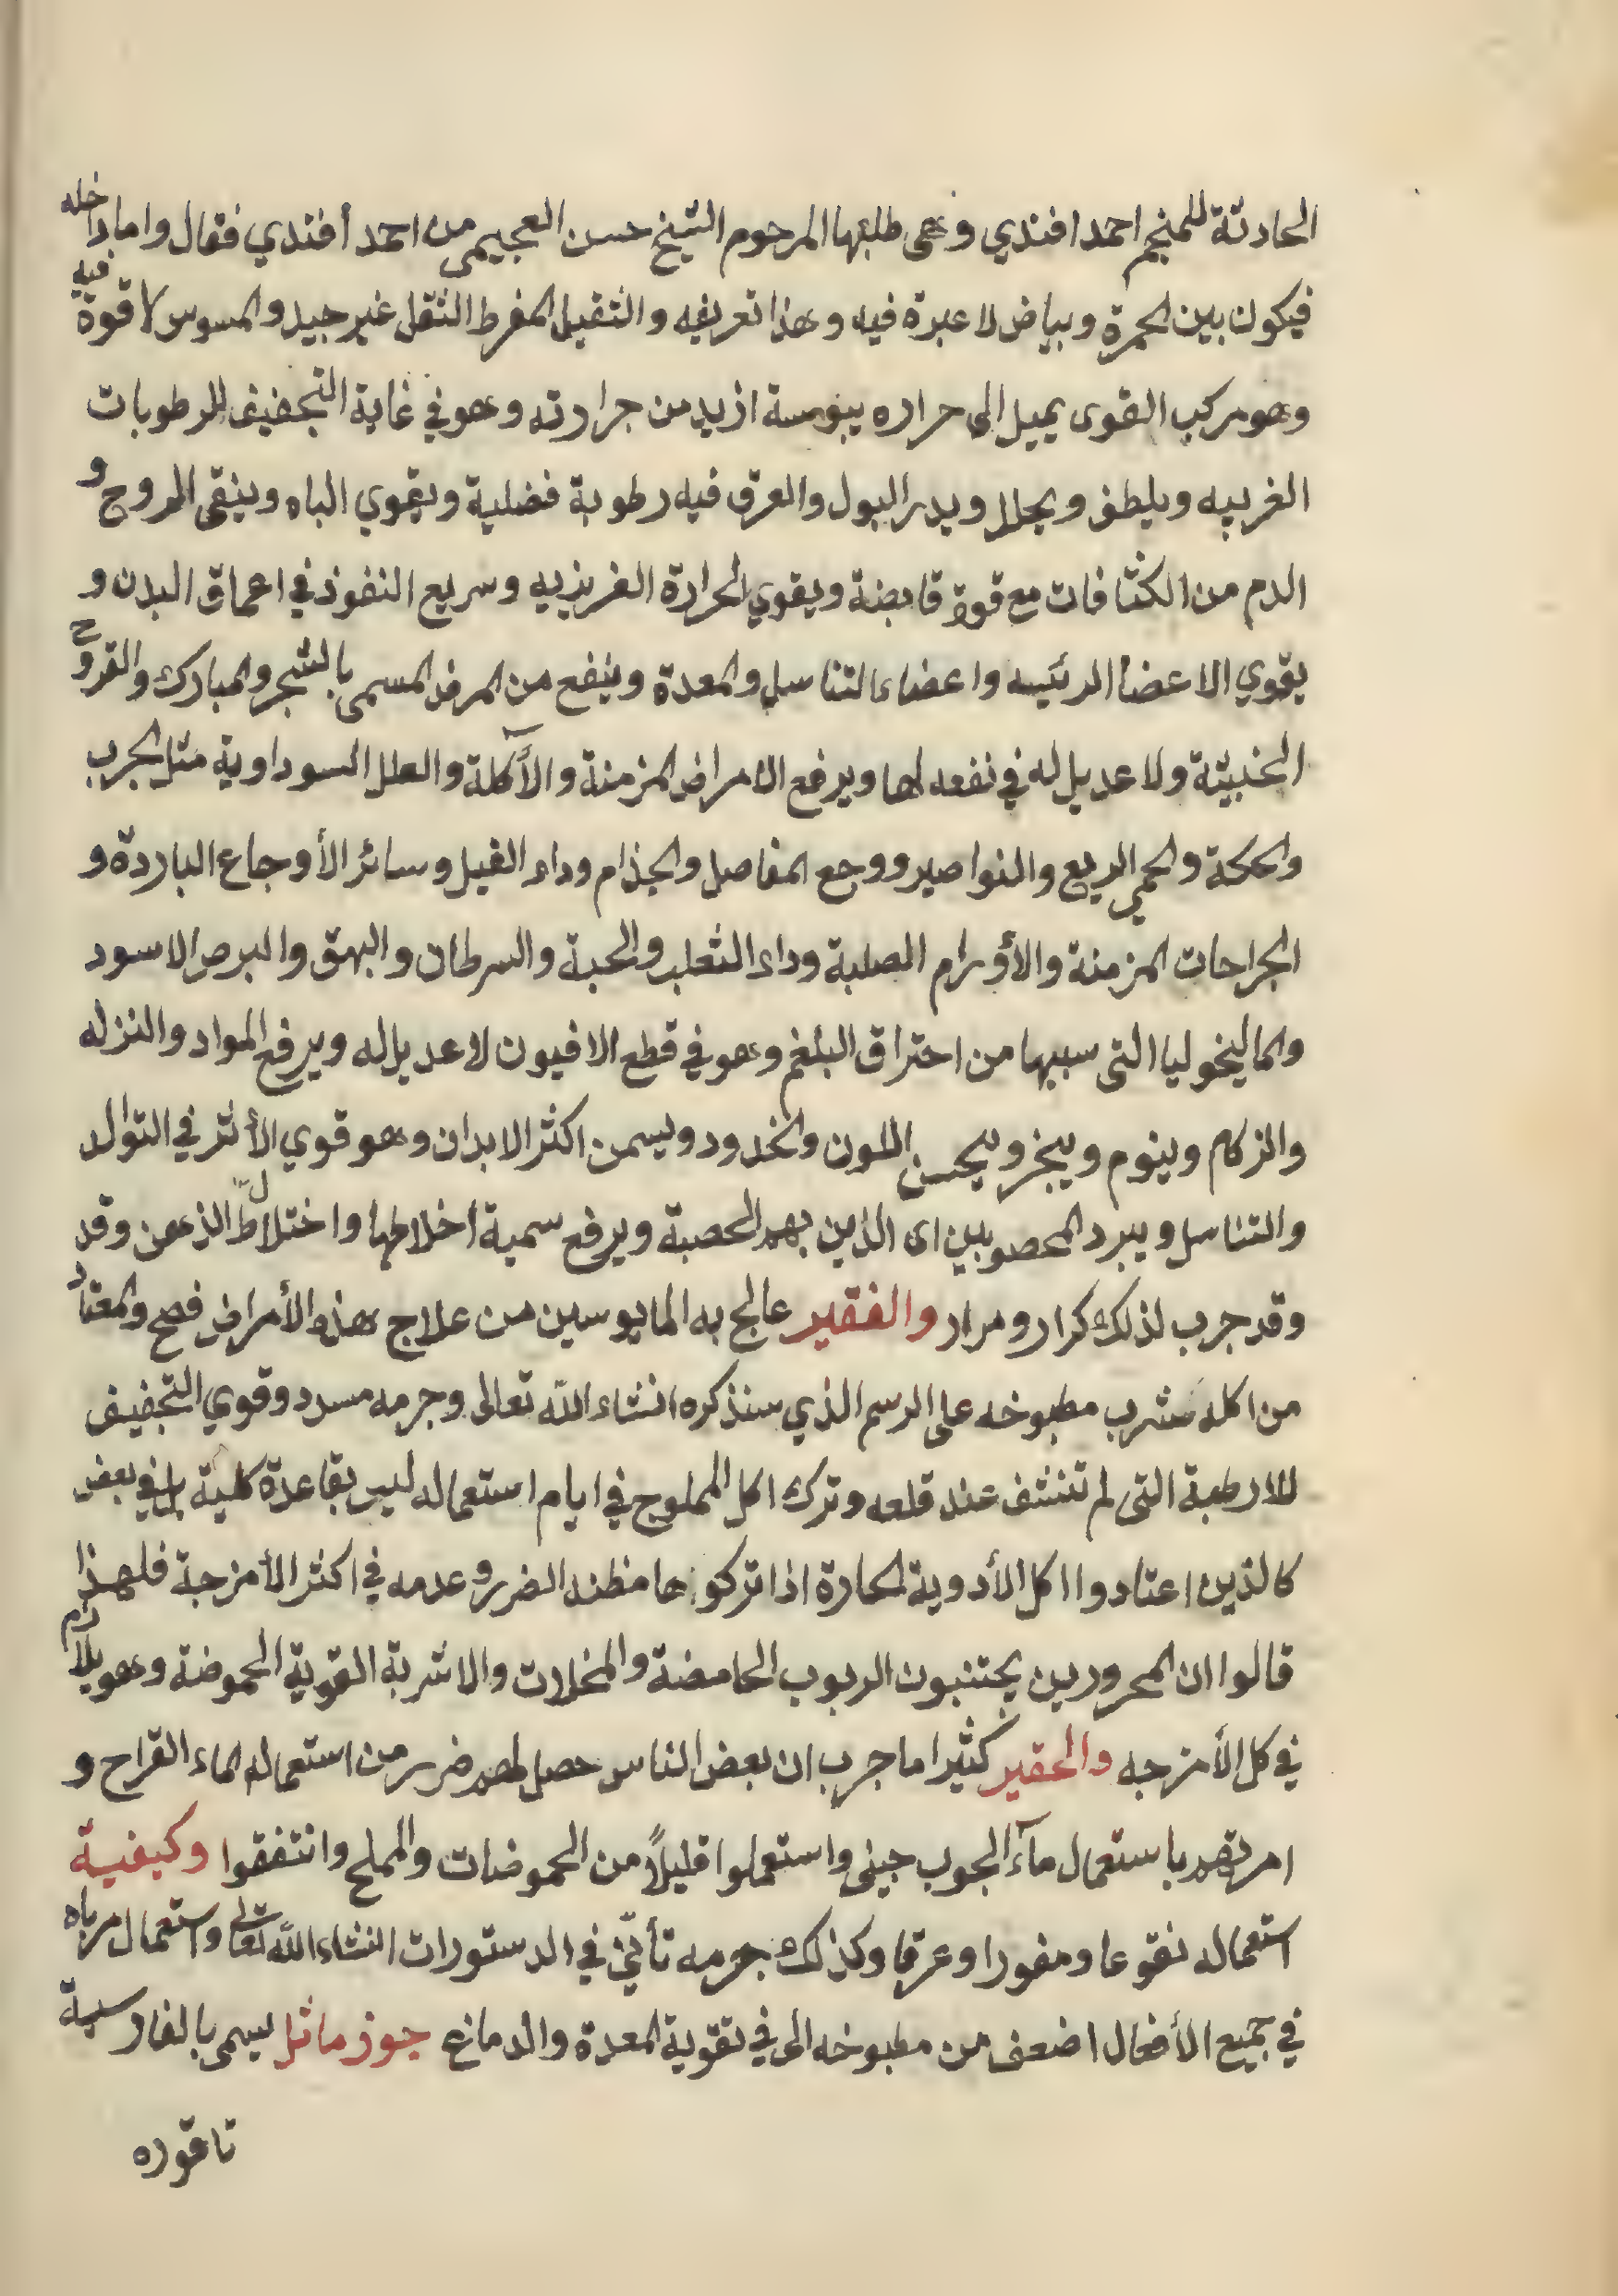 الحادثة للمنجم احمد افندي وهى طلبها المرحوم الشيخ حسن العجيمي من احمد أفندي فقال واما داخله
فيكون بين الحمرة وبياض لا عبرة فيه وهذا تعريفه والثقيل المفرط الثقل غير جيد والمسوس لا قوة فيه
وهو مركب القوى يميل الى حراره يبوسة ازيد من حرارته وهو في غاية التجفيف للرطوبات
الغريبه ويلطف ويحلل ويدر البول والعرق فيه رطوبة فضلية ويقوي الباه وينقى الروح و
الدم من الكثافات مع قوة قابضة ويقوي الحرارة الغريزيه وسريع النفوذ في اعماق البدن و
يقوي الاعضا الرئيسه واعضاء التناسل والمعدة وينفع من المرض المسمى بالشجر والمبارك والقروح
الخبيثة ولا عديل له في نفعه لها ويرفع الامراض المزمنة والأكلة والعلل السوداوية مثل الجرب
والحكة والحمي الربع والنواصير ووجع المفاصل والجذام وداء الفيل وسائر الأوجاع الباردة و
الجراحات المزمنة والأورام الصلبة وداء الثعلب والحية والسرطان والبهق والبرص الاسود
والماليخوليا التى سببها من احتراق البلغم وهو في قطع الافيون لا عديل له ويرفع المواد والنزله
والزكام وينوم ويبخر ويحسن اللون والخدود ويسمن اكثر الابدان وهو قوي الأثر في التوالد
والتناسل ويبرد المحصوبين اى الذين بهم الحصبة ويرفع سمية اخلاطها واختلاط الذهن وقد
وقد جرب لذلك كرار ومرار والفقير عالج به المايوسين من علاج هذه الأمراض فصح والمعتاد
من اكله شرب مطبوخه على الرسم الذي سنذكره انشاء الله تعالى وجرمه مسدد وقوي التجفيف
للارطبة التى لم تنشف عند قلعه وترك اكل المملوح في ايام استعماله ليس بقاعدة كلية بل في بعض
كالذين اعتادوا اكل الأدوية الحارة اذا تركوها مظنه الضرر وعدمه في اكثر الأمزجة فلهذا
قالوا ان المحرورين يجتنبون الربوب الحامضة والمخللات والاشربة القوية الحموضة وهو يلازم
في كل الأمزجه والحقير كثيرا ما جرب ان بعض الناس حصل لهم ضرر من استعماله الماء القراح و
امرتهم باستعمال مآء الجوب جينى واستعملوا قليلاً من الحموضات والملح وانتفقوا وكيفية
استعماله نقوعا ومفورا وعرقا وكذلك جرمه تأتي في الدستورات انشاء الله تعالى واستعمال مرباه
في جميع الأفعال اضعف من مطبوخه الى في تقوية المعدة والدماغ جوز ماثل يسمى بالفارسية
تاقوره